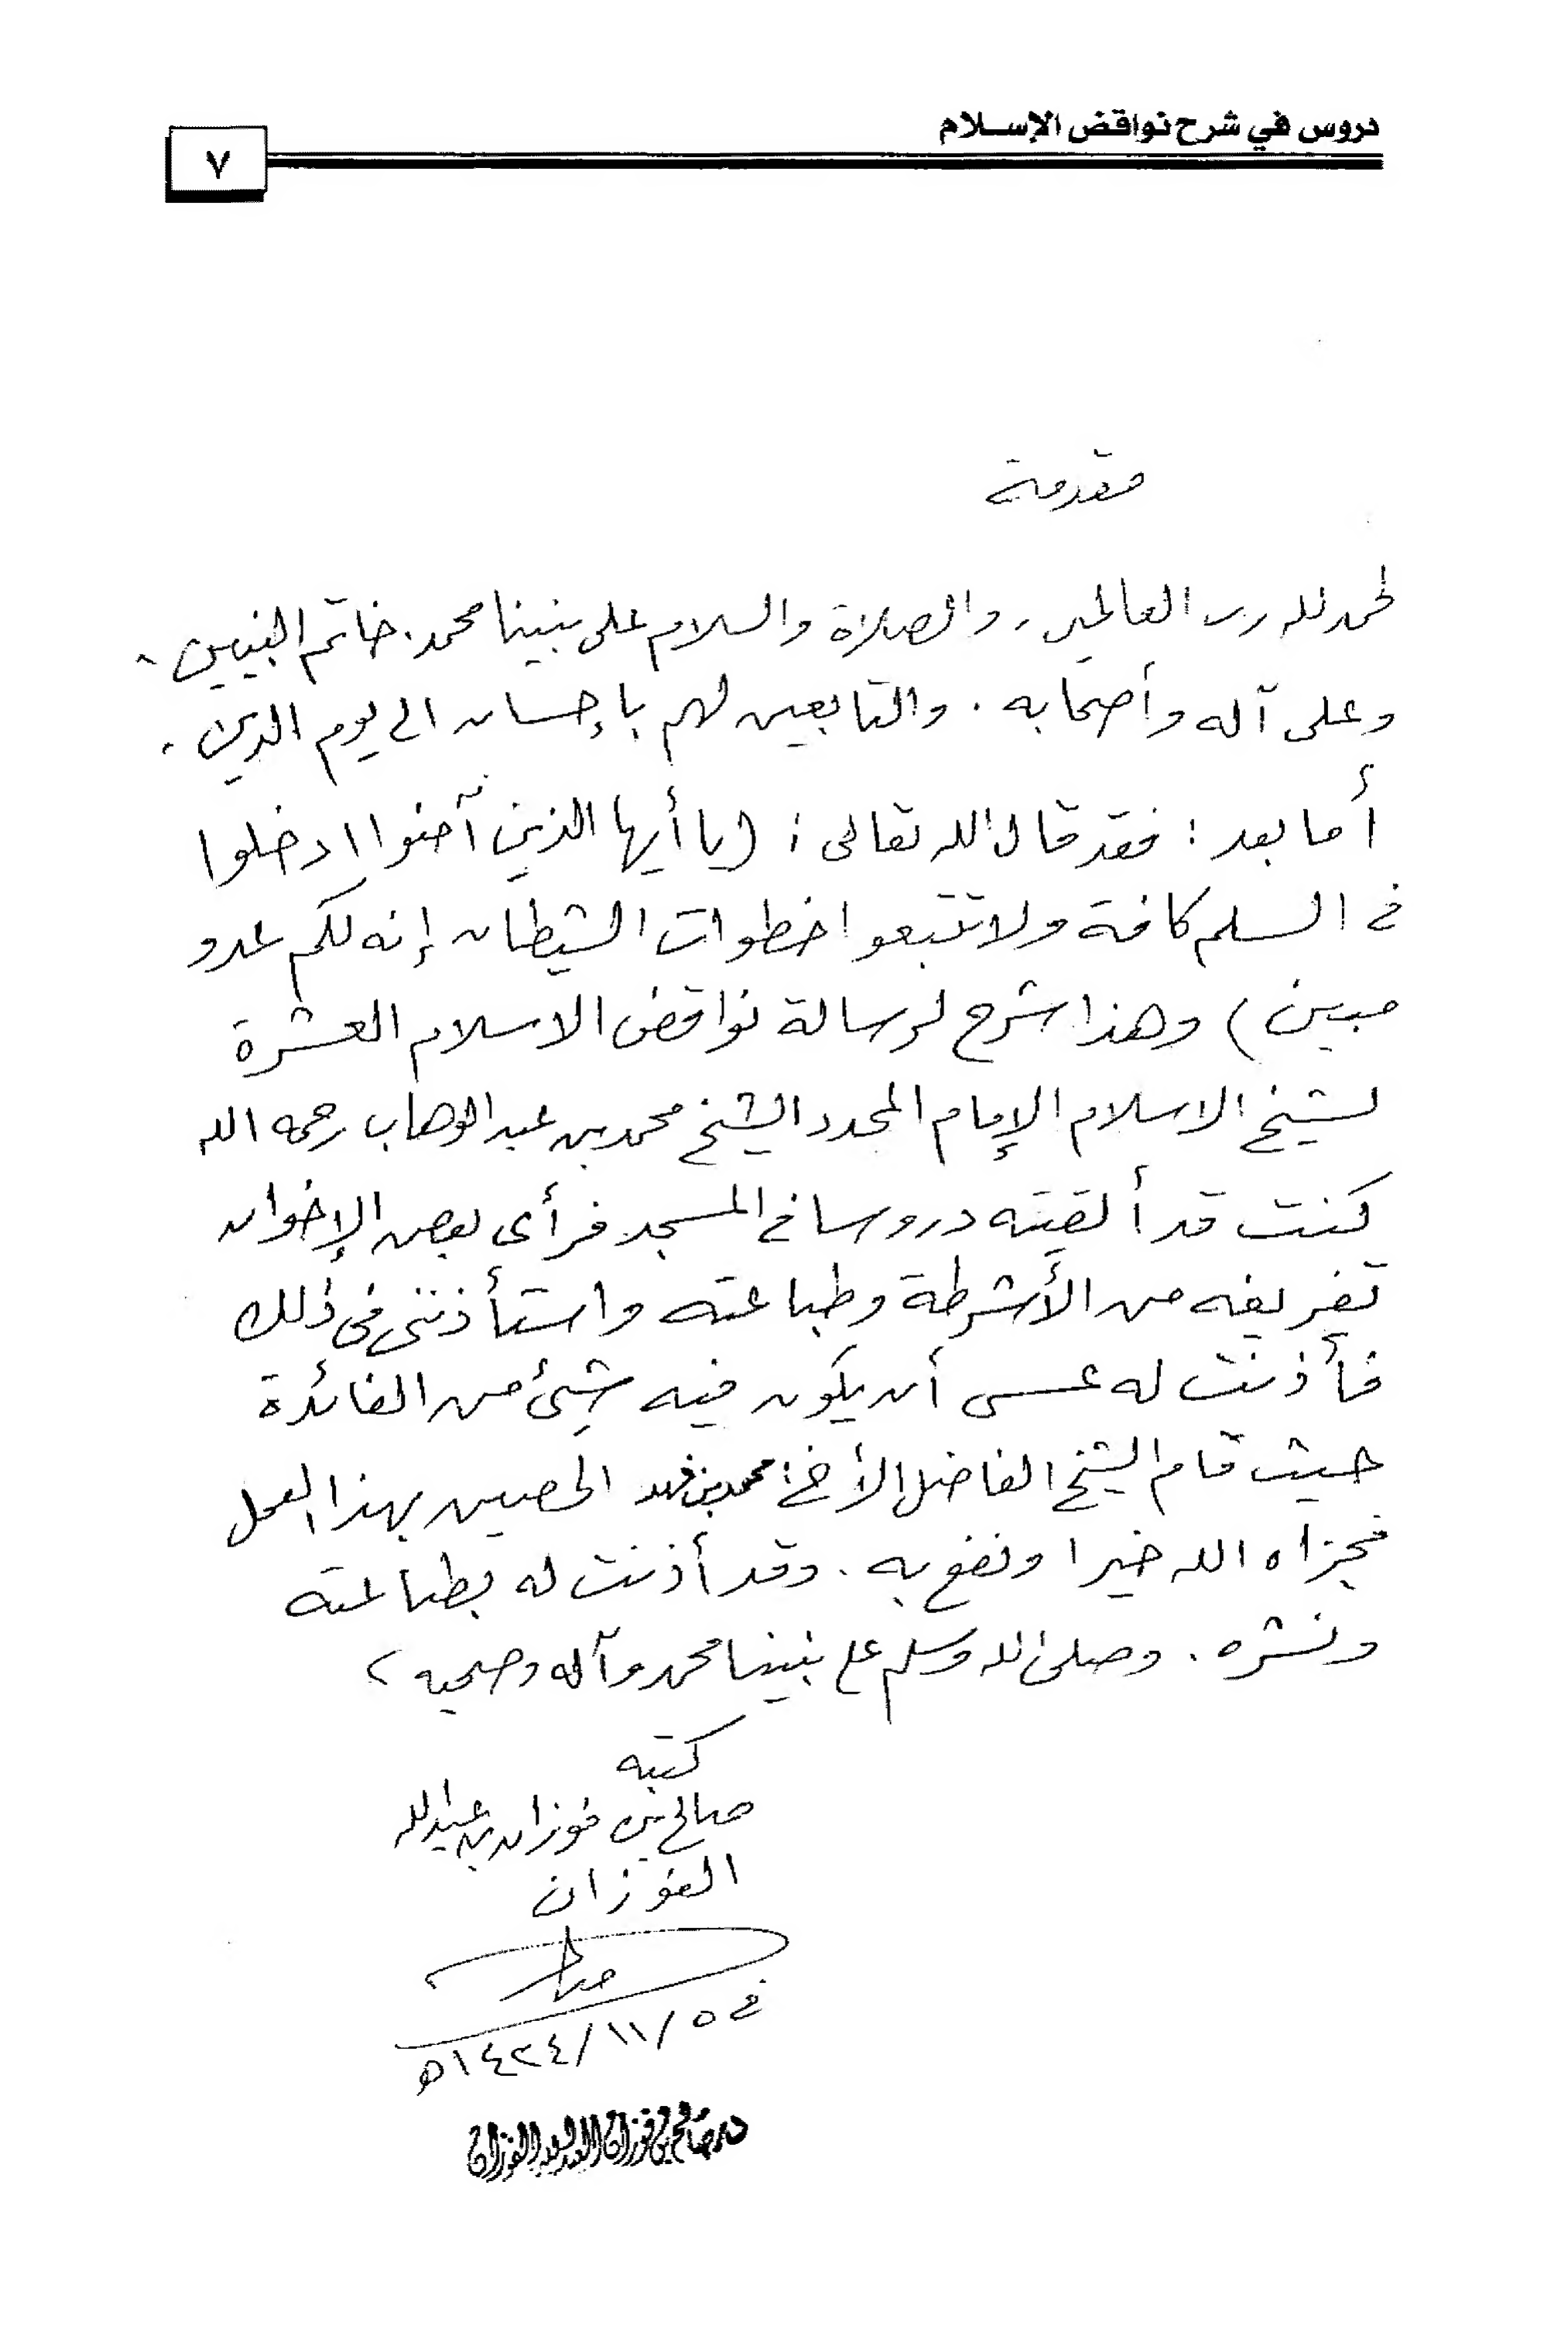 دروس في شرح نواقض الإسلام
٧
مقدمة
الحمد لله رب العالمين، والصلاة والسلام على نبينا محمد. خاتم النبيين،
وعلى آله وأصحابه. والتابعين لهم بإحسان الى يوم الدين،
أما بعد: فقد قال الله تعالى: (يا أيها الذين آمنوا ادخلوا
في السلم كافة ولا تتبعوا خطوات الشيطان إنه لكم عدو
مبين) وهذا شرح لرسالة نواقض الاسلام العشرة
لشيخ الاسلام الإمام المجدد الشيخ محمد بن عبد الوهاب رحمه الله
كنت قد ألقيته دروسا في المسجد فرأى بعض الإخوان
تفريغه من الأشرطة وطباعته واستأذنني في ذلك
فأذنت له عسى أن يكون فيه شيئ من الفائدة
حيث قام الشيخ الفاضل الأخ: محمد بن فهد الحصين بهذا العمل
فجزاه الله خيرا ونفع به. وقد أذنت له بطباعته
ونشره. وصلى الله وسلم على نبينا محمد وآله وصحبه،
كتبه
صالح بن فوزان بن عبد الله
الفوزان
في ٥/١١/١٤٢٤ه